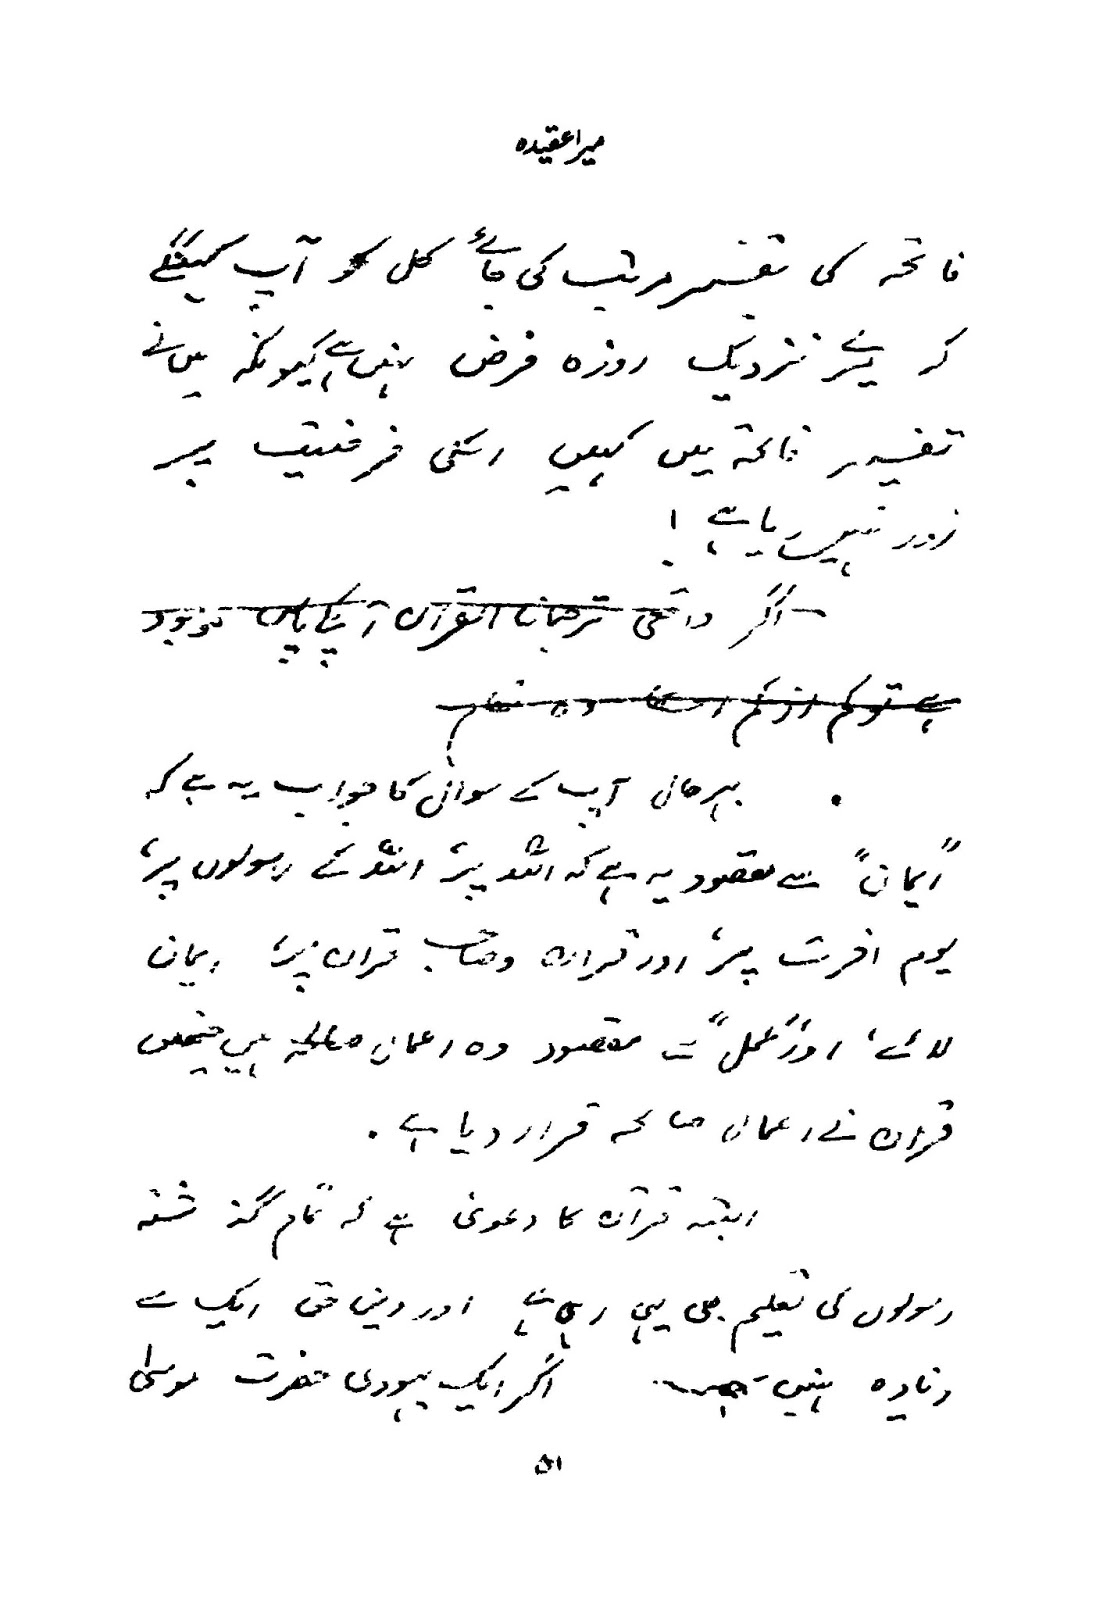 میرا عقیدہ
فاتحہ کی تفسیر مرتب کی جائے کل کو آپ کہینگے
کہ میرے نزدیک روزہ فرض نہیں ہے کیونکہ میں نے
تفسیر فاتحہ میں کہیں اسکی فرضیت پر
زور نہیں دیا ہے !
اگر واقعی ترجمان القرآن آپکے پاس موجود
ہے تو کم از کم اسکا وہ مقام
بہرحال آپ کے سوال کا جواب یہ ہے کہ
"ایمان" سے مقصود یہ ہے کہ اللہ پر، اللہ کے رسولوں پر،
یوم آخرت پر، اور قرآن و صاحب قرآن پر، ایمان
لائے، اور "عمل" سے مقصود وہ اعمال صالحہ ہیں جنھیں
قرآن نے اعمال صالحہ قرار دیا ہے .
البتہ قرآن کا دعوی ہے کہ تمام گذشتہ
رسولوں کی تعلیم بھی یہی رہی ہے اور دین حق ایک سے
زیادہ نہیں اگر ایک یہودی حضرت موسیٰ
۵۱